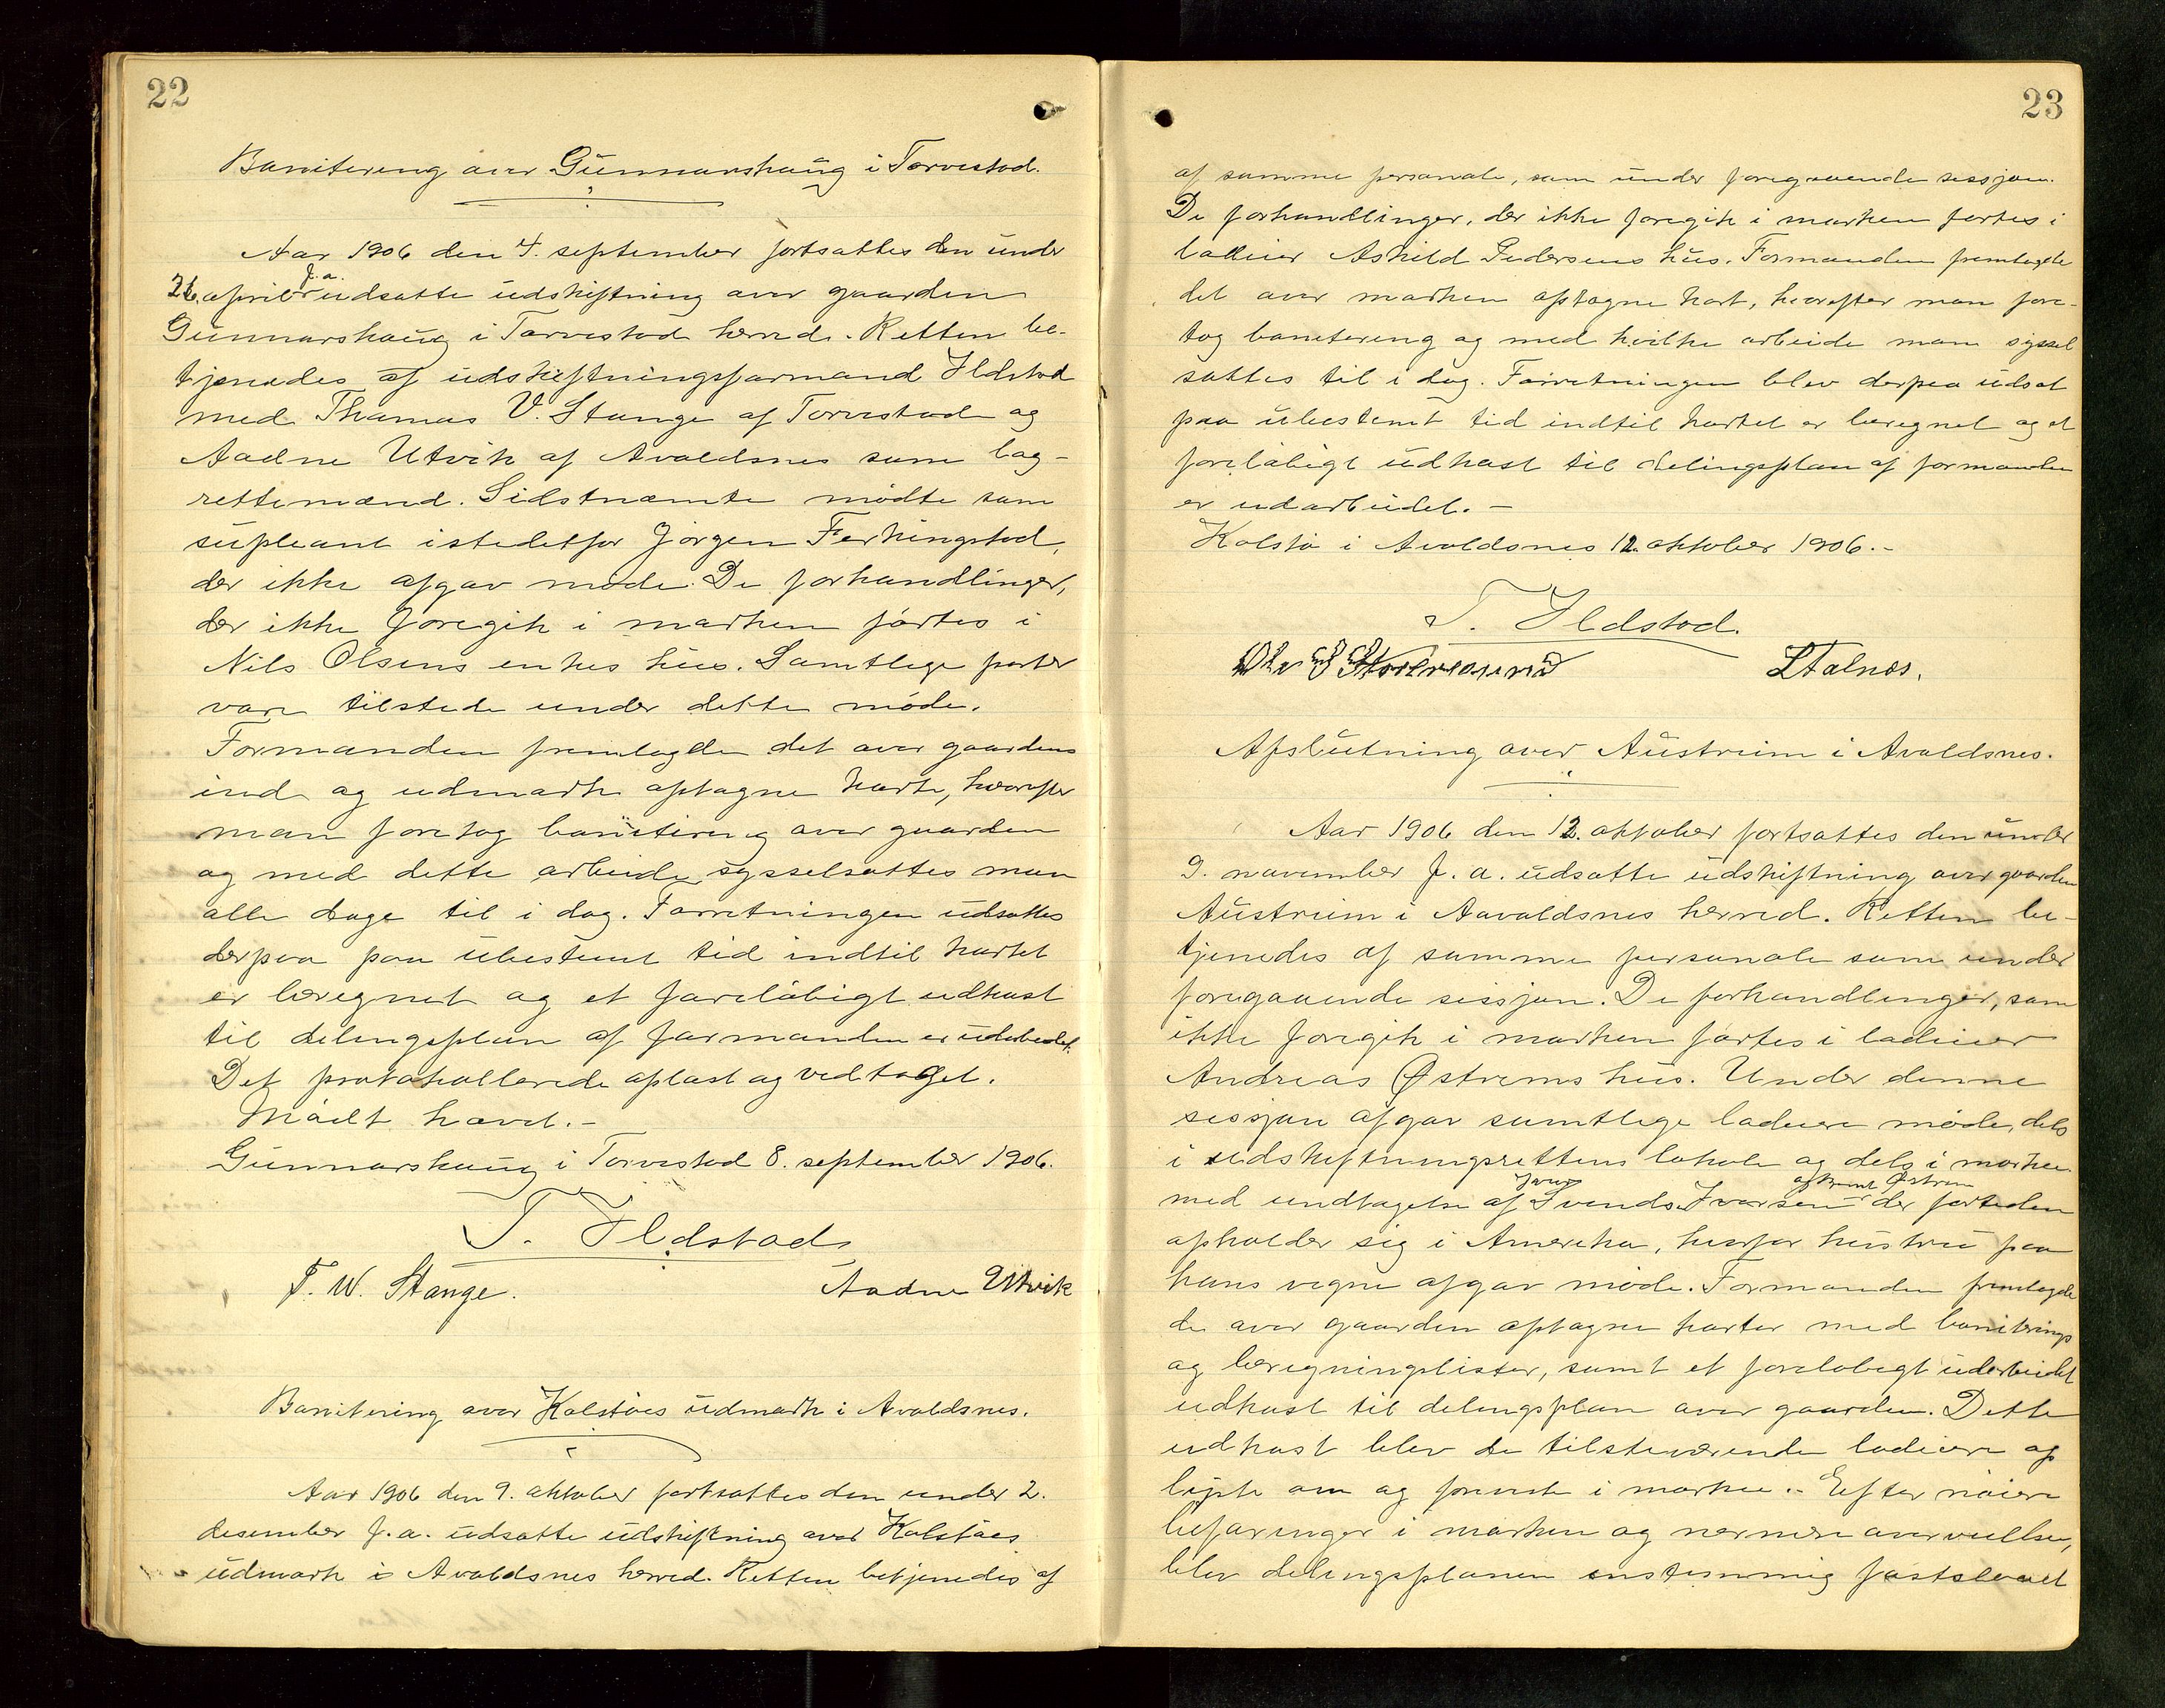 22
Bonitering over Gunnarshaug i Torvestad.
Aar 1906 den 4. september fortsattes den under
26. april f.a. udsatte udskiftning over gaarden
Gunnarshaug i Torvestad herred. Retten be-
tjenedes af udskiftningsformand Ildstad
med Thomas V. Stange af Torvestad og
Aadne Utvik af Avaldsnes som lag-
rettemænd. Sidstnæmte mødte som
supleant istedetfor Jørgen Ferkingstad,
der ikke afgav møde. De forhandlinger,
der ikke foregik i marken førtes i
Nils Olsens enkes hus. Samtlige parter
var tilstede under dette møde.
Formanden fremlagde det over gaardens
ind og udmark optagne kart, hvorefter
man foretog bonitering over gaarden
og med dette arbeide sysselsattes man
alle dage til i dag. Forretningen udsattes
derpaa paa ubestemt tid indtil kartet
er beregnet og et foreløbigt udkast
til delingsplan af formanden er udarbeidet.
Det protokollerede oplæst og vedtaget.
Mødt hævet.-
Gunnarshaug i Torvestad 8. september 1906.
T. Ildstad
T. W. Stange. Aadne Utvik
Bonitering over Kolstøes udmark i Avaldsnes.
Aar 1906 den 9. oktober fortsattes den under 2.
desember f.a. udsatte udskiftning over Kolstøes
udmark i Avaldsnes herred. Retten betjenedes af
23
af samme personale, som under foregaaende sessjon.
De forhandlinger, der ikke foregik i marken førtes i
lodeier Askild Pedersens hus. Formanden fremlagde
det over marken optagne kart, hvorefter man fore-
tog bonitering og med hvilke arbeide man syssel
sattes til i dag. Forretningen blev derpaa udsat
paa ubestemt tid indtil kartet er beregnet og et
foreløbigt udkast til delingsplan af formanden
er udarbeidet. -
Kolstø i Avaldsnes 12. oktober 1906. -
T. Ildstad.
L Falnes.
Afslutning over Austreim i Avaldsnes.
Aar 1906 den 12. oktober fortsattes den under
9. november f.a. udsatte udskiftning over gaarden
Austreim i Aavaldsnes herred. Retten be-
tjenedes af samme personale som under
foregaaende sessjon. De forhandlinger, som
ikke foregik i marken førtes i lodeier
Andreas Østrems hus. Under denne
sessjon afgav samtlige lodeiere møde, dels
i udskiftningsrettens lokale og dels i marken
med undtagelse af Svends Ivarsen og Bernt Østrem der fortiden
opholder sig i Amerika, hvorfor hustru paa
hans vegne afgav møde. Formanden fremlagde
de over gaarden optagne karter med boniterings
og beregningslister, samt et foreløbigt udarbeidet
udkast til delingsplan over gaarden. Dette
udkast blev de tilsteværende lodeiere op
læste om og forevist i marken. - Efter nøiere
befaringer i marken og nærmere overveielse,
blev delingsplanen enstemmig fastslaaet